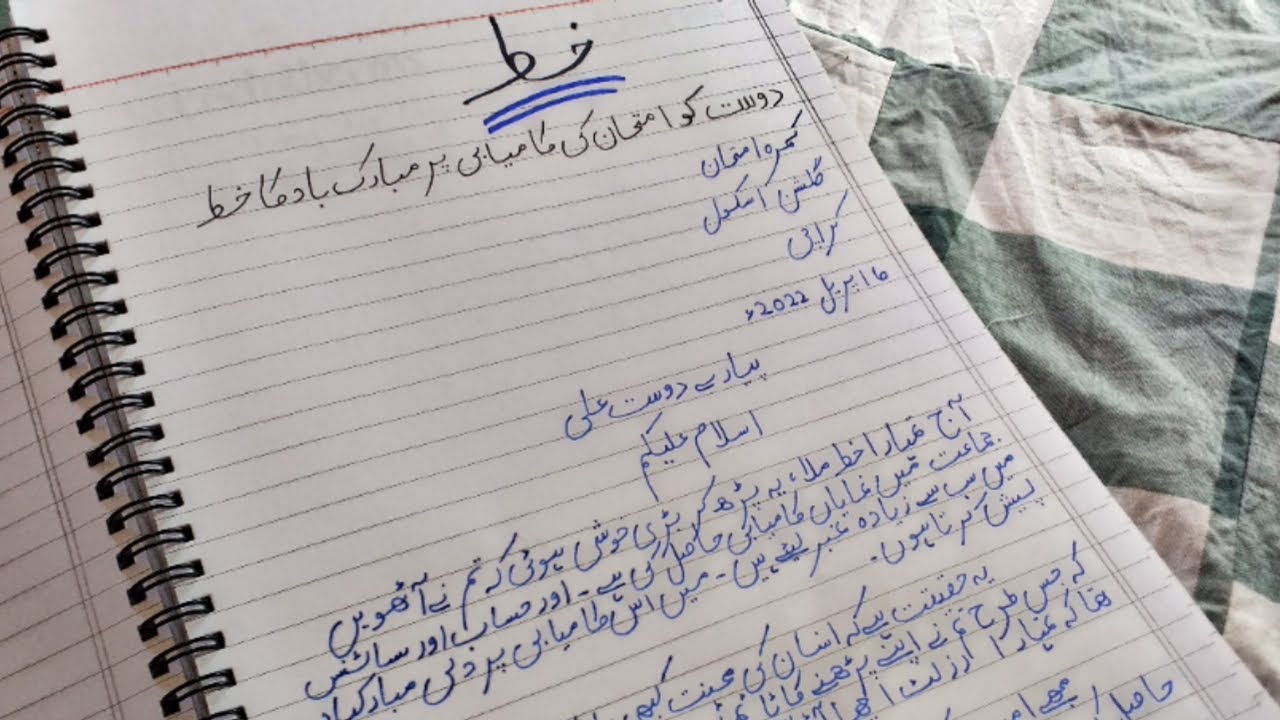 خط
دوست کو امتحان کی کامیابی پر مبارک باد کا خط
کمرہ امتحان
گلشن اسکول
کراچی
۱۶ اپریل 2022ء
پیارے دوست علی
اسلام علیکم
آج تمہارا خط ملا، یہ پڑھ کر بڑی خوشی ہوئی کہ تم نے آٹھویں
جماعت میں نمایاں کامیابی حاصل کی ہے۔ اور حساب اور سائنس
میں سب سے زیادہ نمبر لیئے ہیں۔ میں اس کامیابی پر دلی مبارکباد
پیش کرتا ہوں۔
یہ حقیقت ہے کہ انسان کی محنت کبھی
کہ جس طرح تم نے اپنے پڑھنے کا ٹا
تھا کہ تمہارا رزلٹ اچھا
مجھے
حاصل